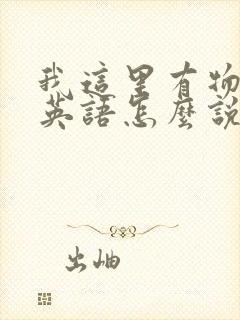 我這里有物
英語怎麼說
出岫